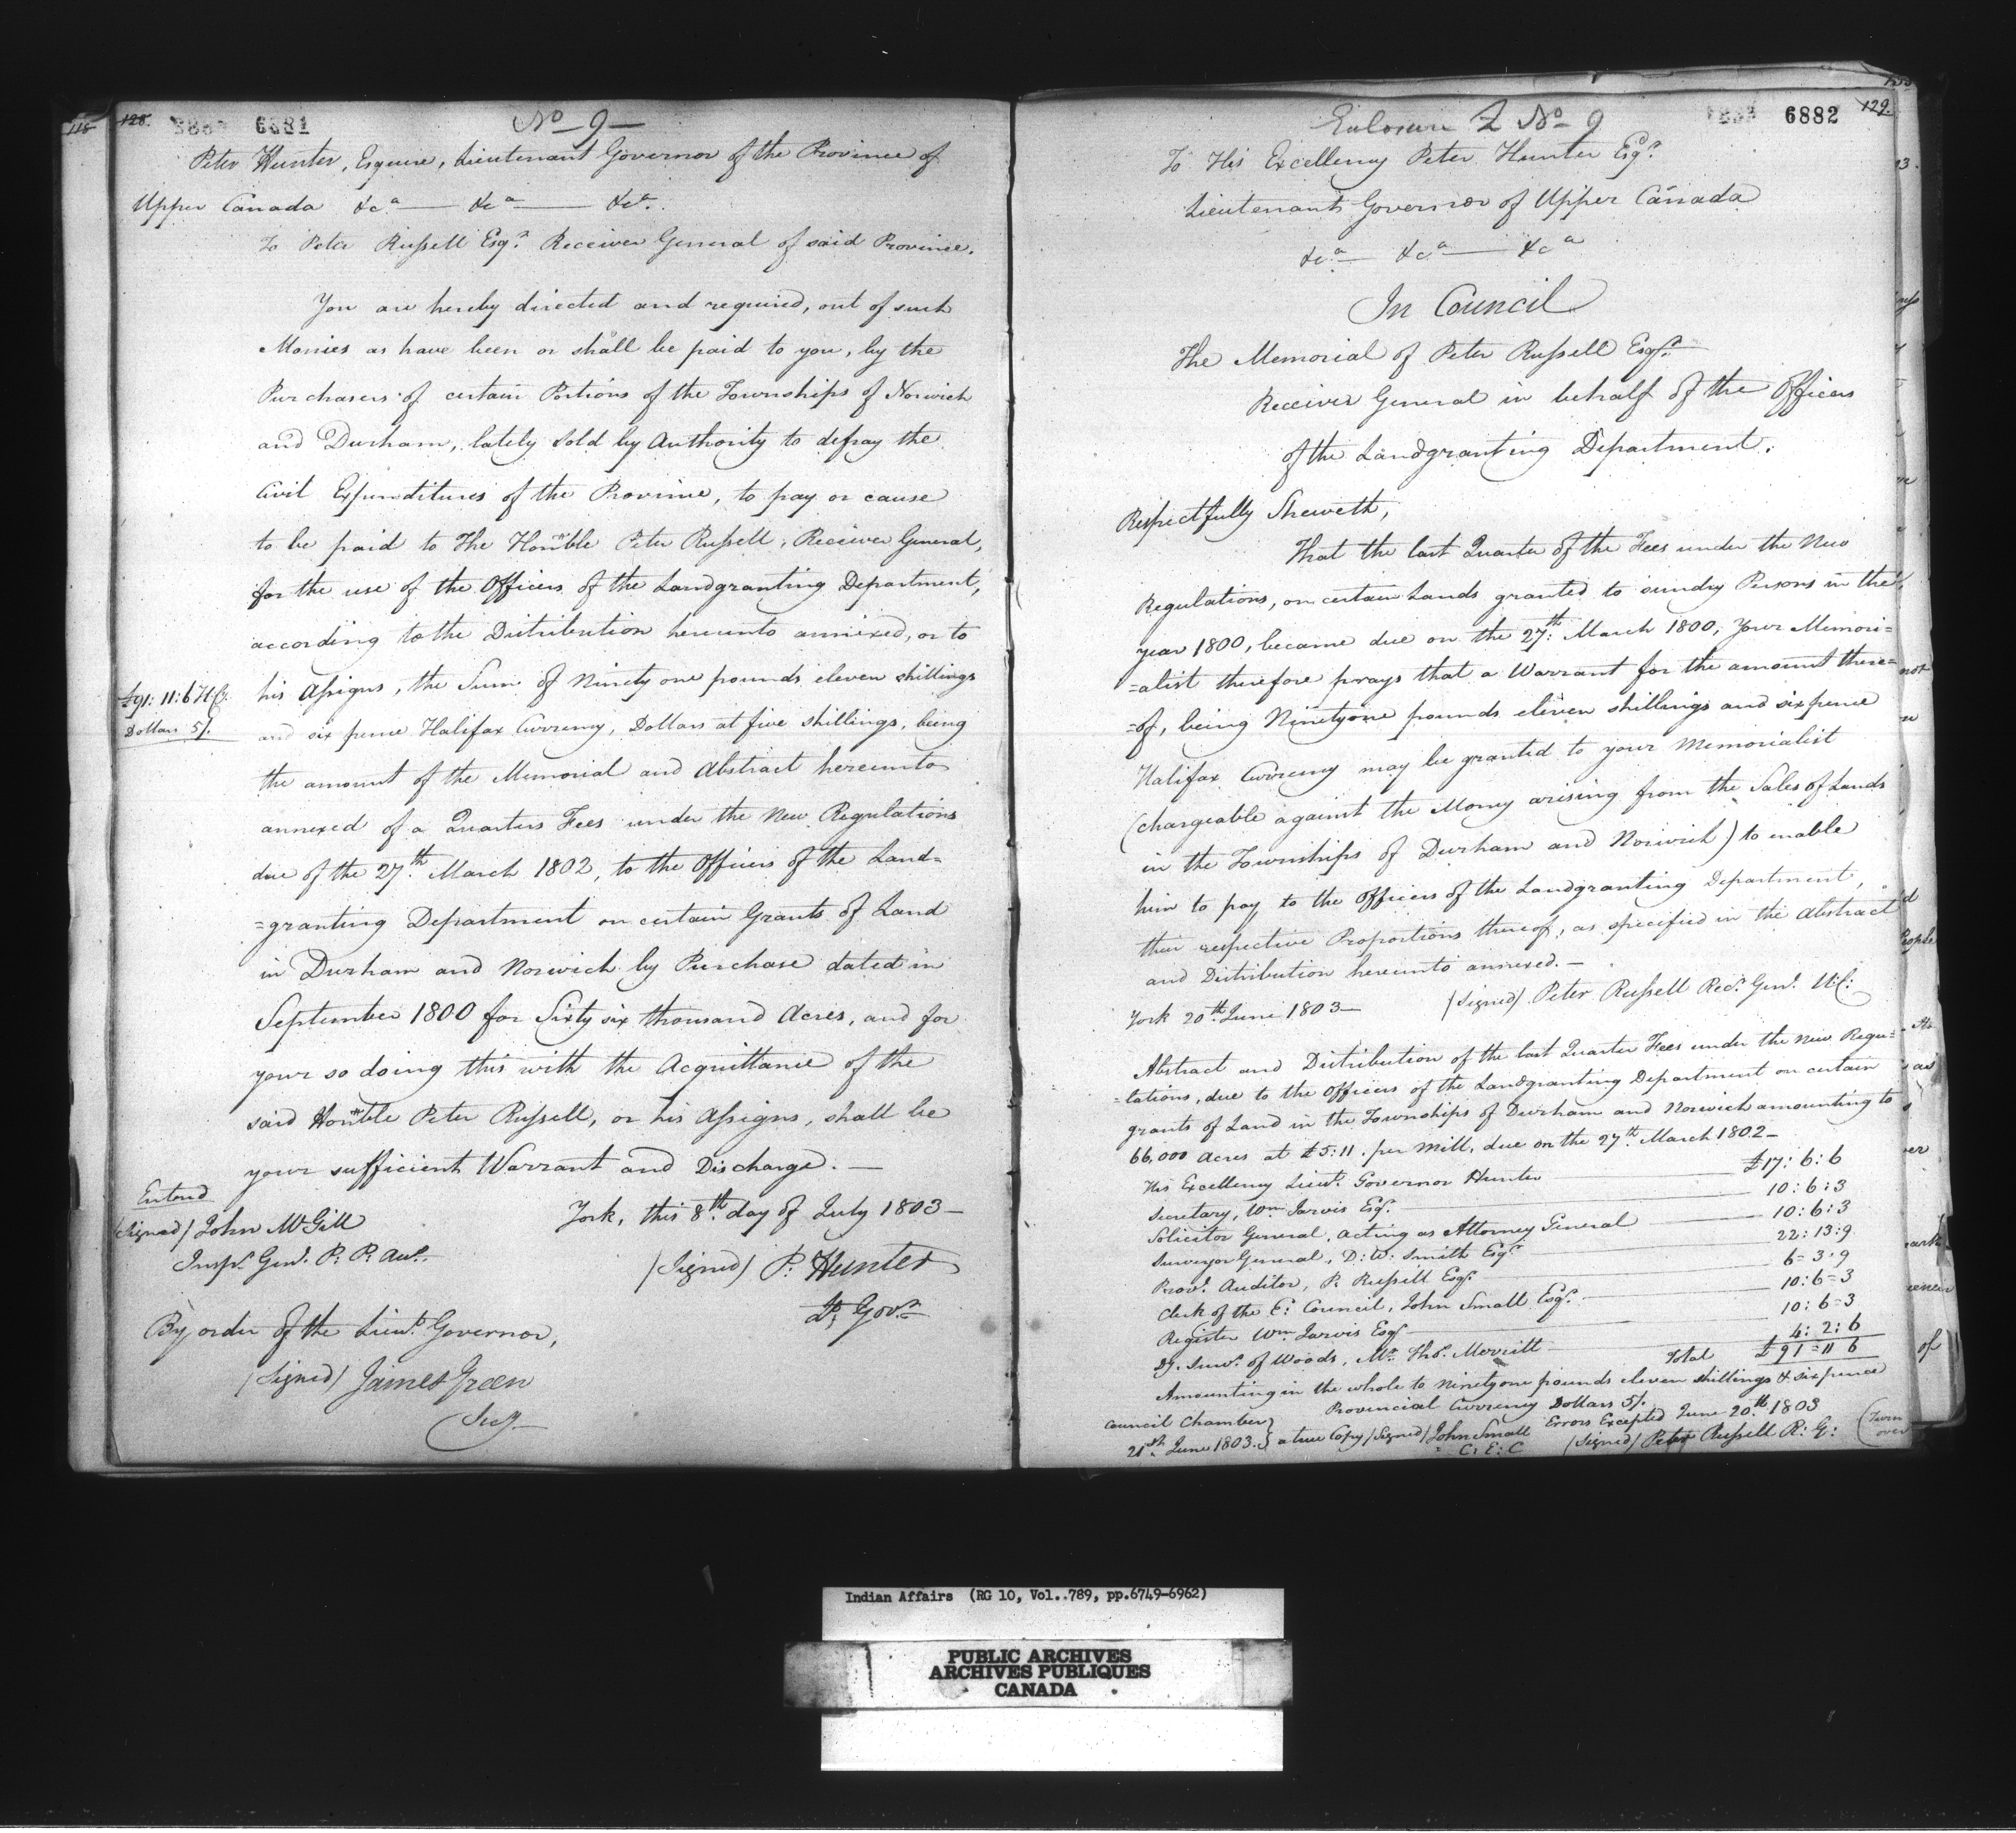 118
128.
6881
No 9
Peter Hunter, Esquire, Lieutenant Governor of the Province of
Upper Canada &ca — &ca — &ca.
To Peter Russell Esqr. Receiver General of said Province.
You are hereby directed and required, out of such
Monies as have been or shall be paid to you, by the
Purchasers of certain Portions of the Townships of Norwich
and Durham, lately sold by Authority to defray the
Civil Expenditures of the Province, to pay or cause
to be paid to The Honble Peter Russell, Receiver General,
for the use of the Officers of the Landgranting Department,
according to the Distribution hereunto annexed, or to
his Assigns, the Sum of Ninety one pounds eleven shillings
£91:11:6 H Cy.
Dollars 5/.
and six pence Halifax Currency, Dollars at five shillings, being
the amount of the Memorial and Abstract hereunto
annexed of a Quarters Fees under the New Regulations
due of the 27th. March 1802, to the Officers of the Land=
=granting Department on certain Grants of Land
in Durham and Norwich by Purchase dated in
September 1800 for Sixty six thousand Acres, and for
your so doing this with the Acquittance of the
said Honble Peter Russell, or his Assigns, shall be
your sufficient Warrant and Discharge. —
Entered
York, this 8th. day of July 1803 —
(Signed) John McGill
Inspr. Genl. P: P: Acts.
(Signed) P: Hunter
Lt. Govr.
By order of the Lieut. Governor,
(Signed) James Green
Secy.
Enclosure 2 No 9
6882
129.
To His Excellency Peter Hunter Esqr.
Lieutenant Governor of Upper Canada
&ca — &ca — &ca
In Council
The Memorial of Peter Russell Esqr.
Receiver General in behalf of the Officers
of the Landgranting Department.
Respectfully Sheweth,
That the last Quarter of the Fees under the New
Regulations, on certain Lands granted to sundry Persons in the
year 1800, became due on the 27th: March 1800, Your Memori=
=alist therefore prays that a Warrant for the amount there=
=of, being Ninetyone pounds eleven shillings and sixpence
Halifax Currency may be granted to your Memorialist
(chargeable against the Money arising from the Sales of Lands
in the Townships of Durham and Norwich) to enable
him to pay to the Officers of the Landgranting Department,
their respective Proportions thereof, as specified in the Abstract
and Distribution hereunto annexed. —
York 20th. June 1803 — (Signed) Peter Russell Recr. Genl. U:C:
Abstract and Distribution of the last Quarter Fees under the New Regu=
=lations, due to the Officers of the Landgranting Department on certain
grants of Land in the Townships of Durham and Norwich amounting to
66,000 Acres at £5:11. per Mill, due on the 27th. March 1802 —
His Excellency Lieut. Governor Hunter — £17:6:6
Secretary, Wm Jarvis Esqr. — 10:6:3
Solicitor General, acting as Attorney General — 10:6:3
Surveyor General, D:W: Smith Esqr. — 22:13:9
Provl. Auditor, P. Russell Esqr. — 6=3:9
Clerk of the E: Council, John Small Esqr. — 10:6=3
Register Wm Jarvis Esqr — 10:6=3
Survr. of Woods, Mr. Thos. Merritt — 4:2:6
Total £91=11 6
Amounting in the whole to Ninetyone pounds eleven shillings & sixpence
Provincial Currency Dollars 5/.
Errors Excepted June 20th. 1803
Council Chamber }
21st. June 1803. } a true Copy (Signed) John Small
C: E: C
(Signed) Peter Russell R: G:
(Turn over
Indian Affairs (RG 10, Vol..789, pp.6749-6962)
PUBLIC ARCHIVES
ARCHIVES PUBLIQUES
CANADA